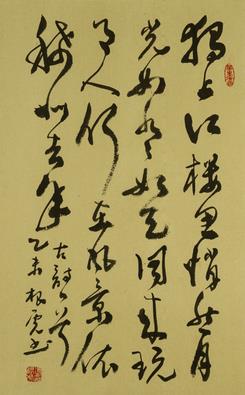 獨上江樓思悄然月
光如水水如天同来玩
月人何在風景依
稀似去年
古詩一首
乙未
书